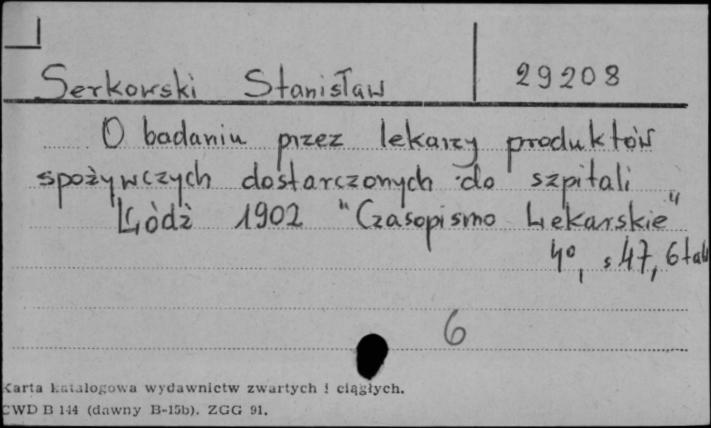 Serkowski Stanisław 29208
O badaniu przez lekarzy produktów
spożywczych dostarczonych do szpitali
Łódź 1902 "Czasopismo Lekarskie"
4°, s 47, 6 tab
6
Karta katalogowa wydawnictw zwartych i ciągłych.
CWD B 144 (dawny B-15b). ZGG 91.